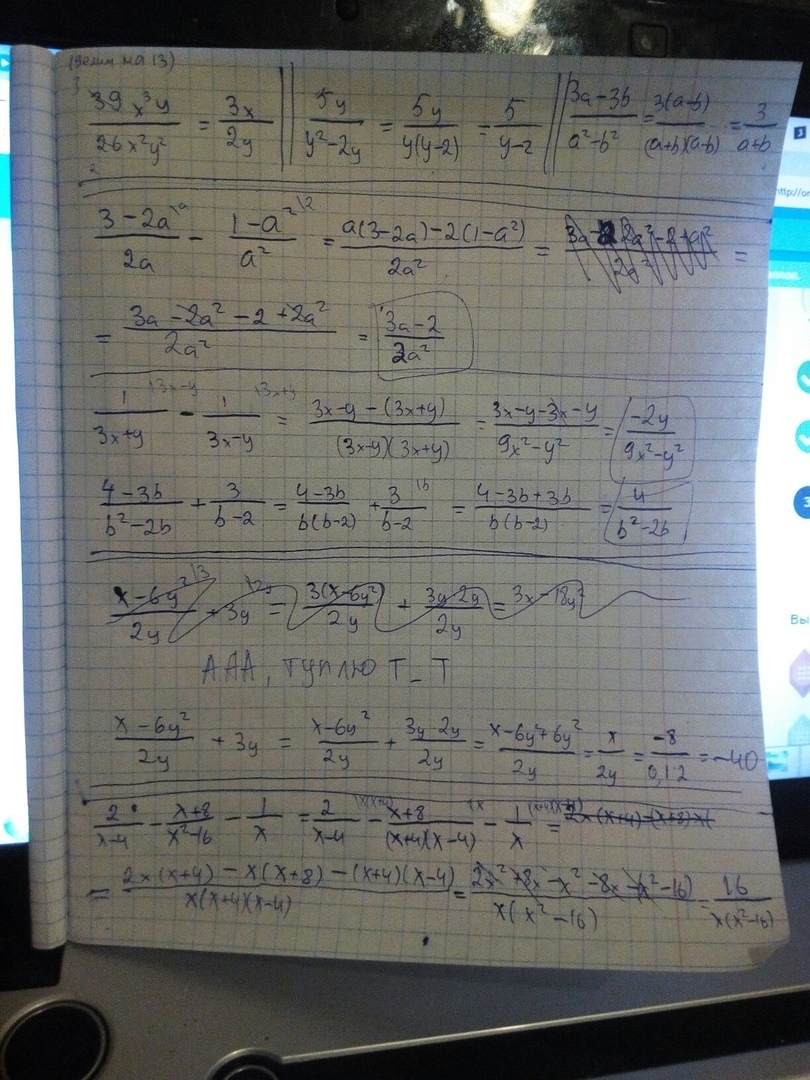 (делим на 13)
3
39x³y / 26x²y² = 3x / 2y || 5y / y²-2y = 5y / y(y-2) = 5 / y-2 || 3a-3b / a²-b² = 3(a-b) / (a+b)(a-b) = 3 / a+b
2
3-2a\a / 2a - 1-a²\2 / a² = a(3-2a)-2(1-a²) / 2a² = =
= 3a-2a²-2+2a² / 2a² = 3a-2 / 2a²
1 / 3x+y \3x-y - 1 / 3x-y \3x+y = 3x-y-(3x+y) / (3x-y)(3x+y) = 3x-y-3x-y / 9x²-y² = -2y / 9x²-y²
4-3b / b²-2b + 3 / b-2 = 4-3b / b(b-2) + 3\b / b-2 = 4-3b+3b / b(b-2) = 4 / b²-2b
x-6y²\3 / 2y + 3y\2y = 3(x-6y²) / 2y + 3y·2y / 2y = 3x-18y²
ААА, ТУПЛЮ Т_Т
x-6y² / 2y + 3y = x-6y² / 2y + 3y·2y / 2y = x-6y²+6y² / 2y = x / 2y = -8 / 0,1·2 = -40
2 / x-4 - x+8 / x²-16 - 1 / x = 2 / x-4 \x(x+4) - x+8 / (x+4)(x-4) \x - 1 / x \(x+4)(x-4) = 2x(x+4)-(x+8)x(
= 2x(x+4)-x(x+8)-(x+4)(x-4) / x(x+4)(x-4) = 2x²+8x-x²-8x-(x²-16) / x(x²-16) = 16 / x(x²-16)
http://or
Вы